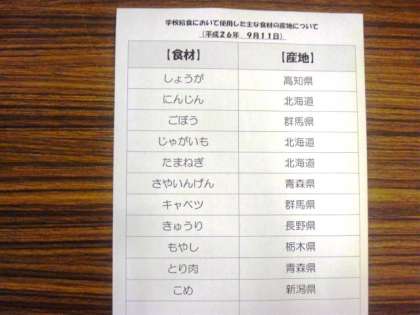 学校給食において使用した主な食材の産地について
（平成２６年　９月１１日）
【食材】　【産地】
しょうが　高知県
にんじん　北海道
ごぼう　群馬県
じゃがいも　北海道
たまねぎ　北海道
さやいんげん　青森県
キャベツ　群馬県
きゅうり　長野県
もやし　栃木県
とり肉　青森県
こめ　新潟県